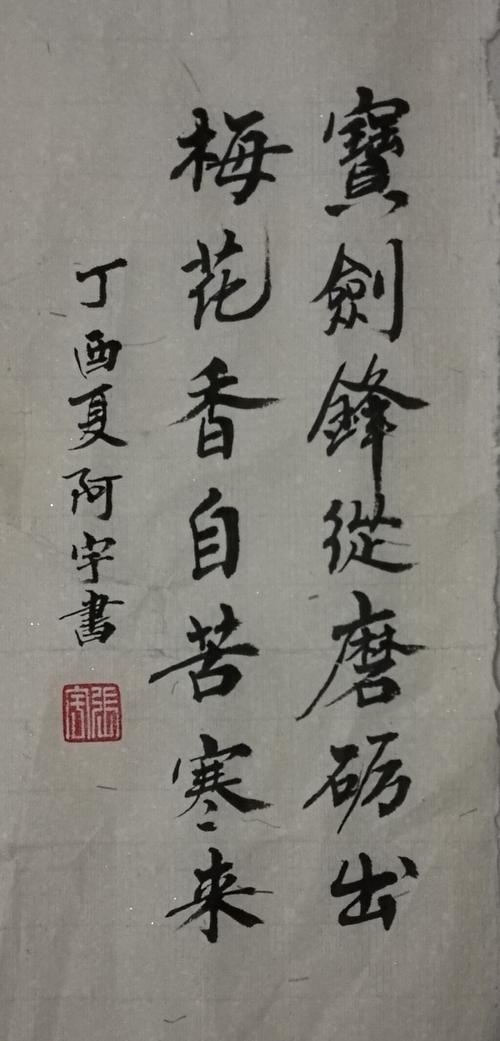 寶劍鋒從磨砺出
梅花香自苦寒来
丁酉夏阿宇書
張宇